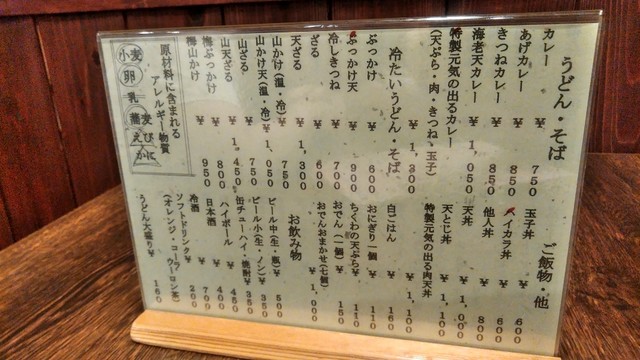 うどん・そば
カレー ¥750
あげカレー ¥850
きつねカレー ¥850
海老天カレー ¥1,050
特製元気の出るカレー ¥1,300
(天ぷら・肉・きつね・玉子)
冷たいうどん・そば
ぶっかけ ¥600
ぶっかけ天 ¥900
冷しきつね ¥700
ざる ¥600
天ざる ¥1,300
山かけ(温・冷) ¥750
山かけ天(温・冷) ¥1,050
山ざる ¥750
山天ざる ¥1,450
梅ぶっかけ ¥800
梅山かけ ¥950
原材料に含まれる
アレルギー物質
小麦
卵
乳
蕎麦
えび
かに
ご飯物・他
玉子丼 ¥600
イカラ丼 ¥600
他人丼 ¥800
天丼 ¥1,000
天とじ丼 ¥1,100
特製元気の出る肉天丼 ¥1,100
白ごはん ¥160
おにぎり一個 ¥110
ちくわの天ぷら ¥110
おでん(一個) ¥150
おでんおまかせ(七個) ¥1,000
お飲み物
ビール中(生・瓶) ¥500
ビール小(生・ノン) ¥350
缶チューハイ・焼酎 ¥350
ハイボール ¥450
日本酒 ¥400
冷酒 ¥700
ソフトドリンク ¥200
(オレンジ・コーラ
ウーロン茶)
うどん大盛り ¥160